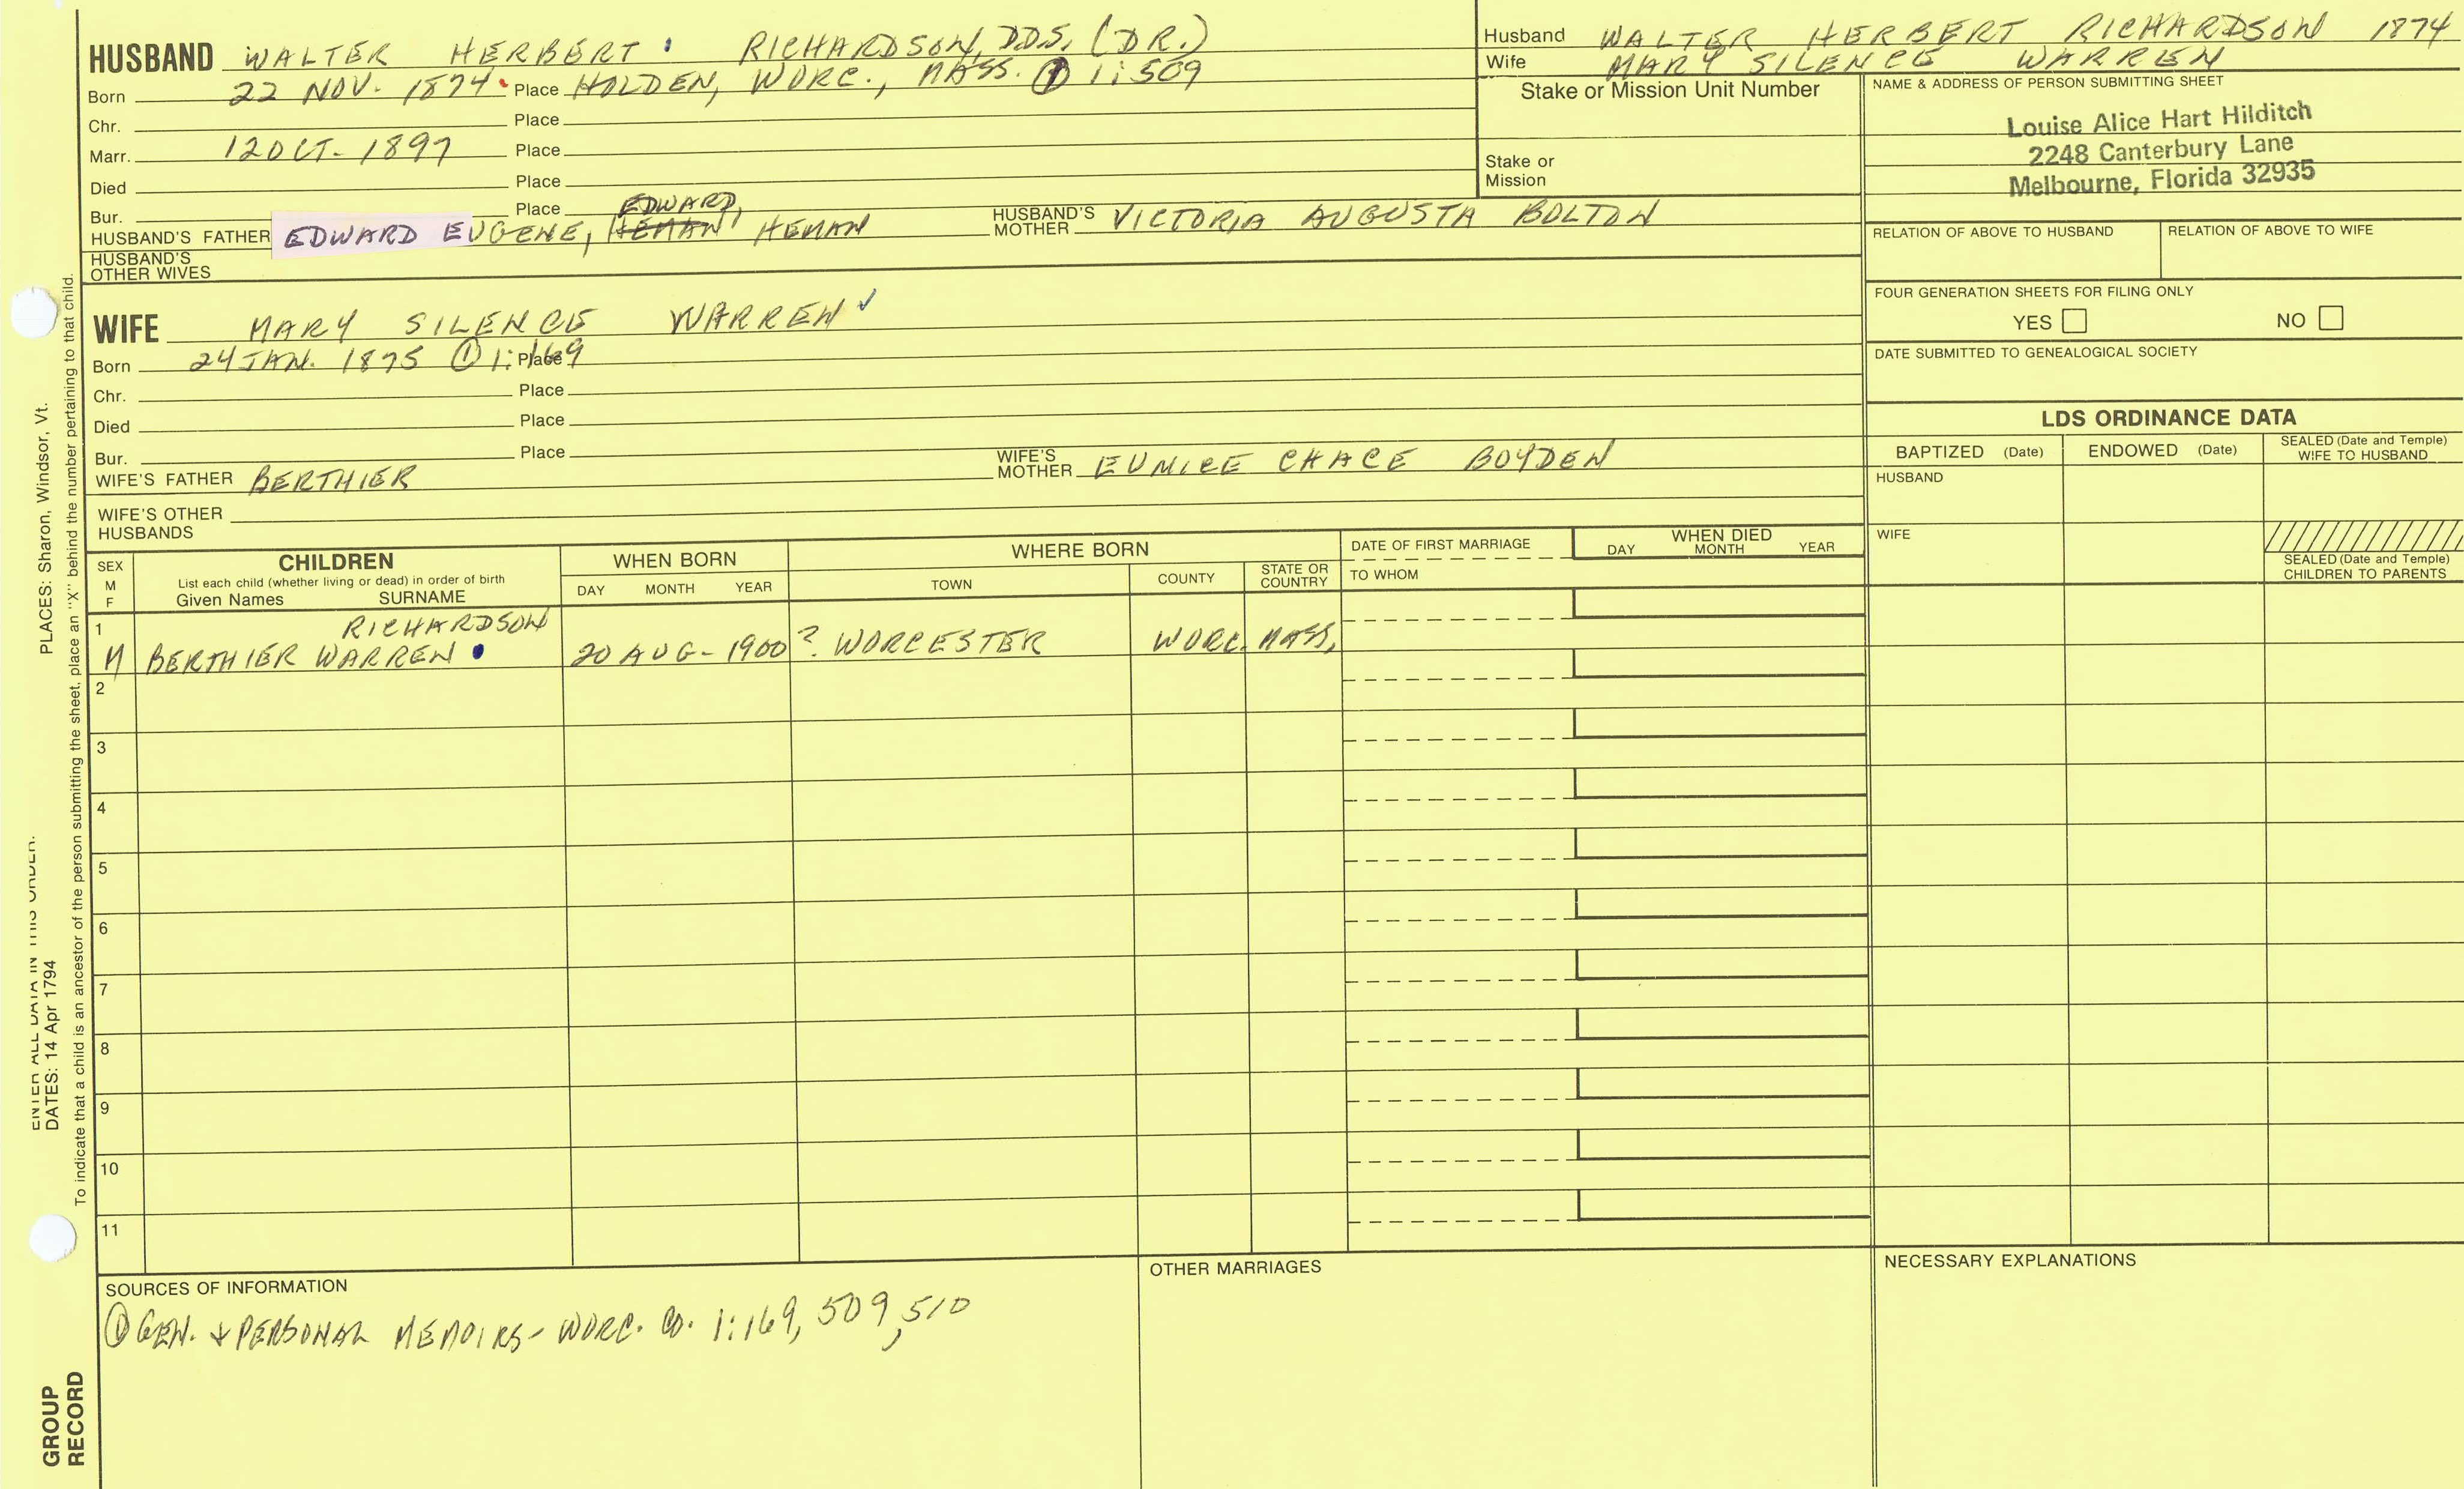 HUSBAND WALTER HERBERT RICHARDSON, DDS, (DR.)
Born 22 NOV. 1874 Place HOLDEN, WORC., MASS. ① 1:509
Chr. Place
Marr. 12 OCT. 1897 Place
Died Place
Bur. Place
EDWARD,
HUSBAND'S FATHER EDWARD EUGENE, HEMAN HEMAN HUSBAND'S MOTHER VICTORIA AUGUSTA BOLTON
HUSBAND'S
OTHER WIVES
WIFE MARY SILENCE WARREN ✓
Born 24 JAN. 1875 ① 1:169 Place
Chr. Place
Died Place
Bur. Place
WIFE'S FATHER BERTHIER WIFE'S MOTHER EUNICE CHACE BOYDEN
WIFE'S OTHER
HUSBANDS
Husband WALTER HERBERT RICHARDSON 1874
Wife MARY SILENCE WARREN
Stake or Mission Unit Number
Stake or
Mission
NAME & ADDRESS OF PERSON SUBMITTING SHEET
Louise Alice Hart Hilditch
2248 Canterbury Lane
Melbourne, Florida 32935
RELATION OF ABOVE TO HUSBAND RELATION OF ABOVE TO WIFE
FOUR GENERATION SHEETS FOR FILING ONLY
YES NO
DATE SUBMITTED TO GENEALOGICAL SOCIETY
LDS ORDINANCE DATA
BAPTIZED (Date) ENDOWED (Date) SEALED (Date and Temple) WIFE TO HUSBAND
HUSBAND
WIFE
SEALED (Date and Temple)
CHILDREN TO PARENTS
SEX
M
F
CHILDREN
List each child (whether living or dead) in order of birth
Given Names SURNAME
WHEN BORN
DAY MONTH YEAR
WHERE BORN
TOWN COUNTY STATE OR COUNTRY
DATE OF FIRST MARRIAGE
TO WHOM
WHEN DIED
DAY MONTH YEAR
1 RICHARDSON
M BERTHIER WARREN 20 AUG- 1900 ? WORCESTER WORC. MASS,
2
3
4
5
6
7
8
9
10
11
SOURCES OF INFORMATION
① GEN. & PERSONAL MEMOIRS- WORC. CO. 1:169, 509, 510
OTHER MARRIAGES
NECESSARY EXPLANATIONS
ENTER ALL DATA IN THIS ORDER:
DATES: 14 Apr 1794 PLACES: Sharon, Windsor, Vt.
To indicate that a child is an ancestor of the person submitting the sheet, place an "X" behind the number pertaining to that child.
GROUP
RECORD